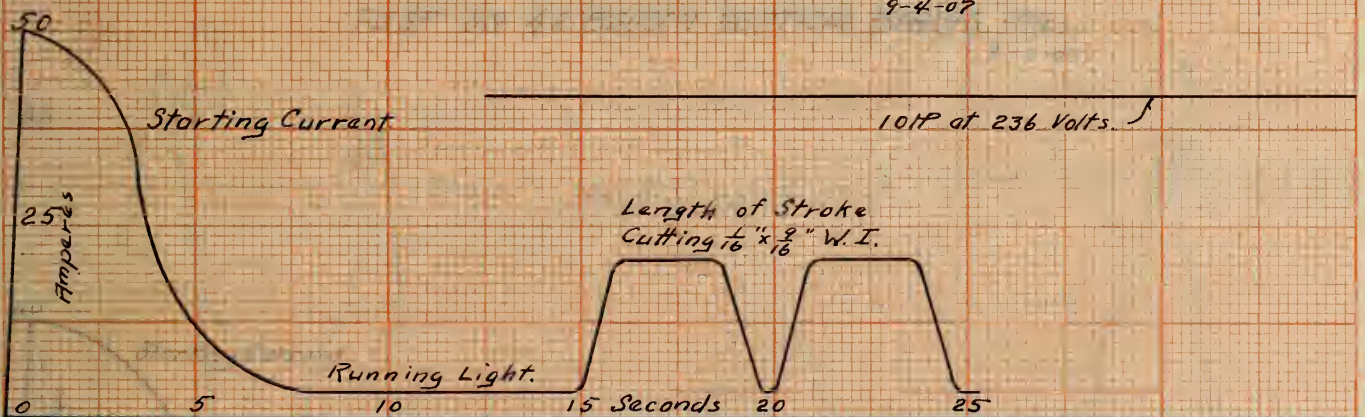 9-4-07
50
Starting Current
10 HP at 236 Volts.
25
Amperes
Length of Stroke
Cutting 1/16" x 9/16" W. I.
Running Light.
0 5 10 15 Seconds 20 25